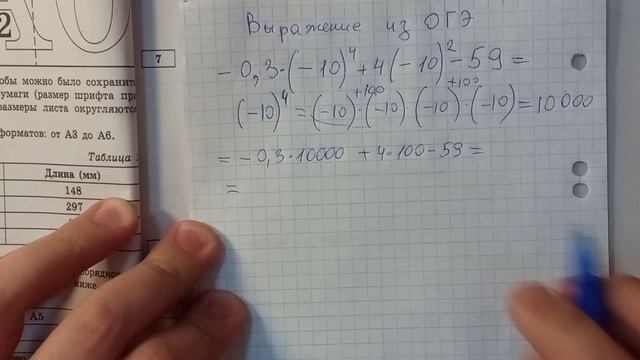 2
7
обы можно было сохранит
умаги (размер шрифта пр
размеры листа округляютс
форматов: от А3 до А6.
Таблица
Длина (мм)
148
297
ниже
А5
Выражение из ОГЭ
- 0,3·(-10)⁴+4(-10)²-59=
+100 +100
(-10)⁴=(-10)·(-10)·(-10)·(-10)=10000
= -0,3·10000 +4·100-59=
=